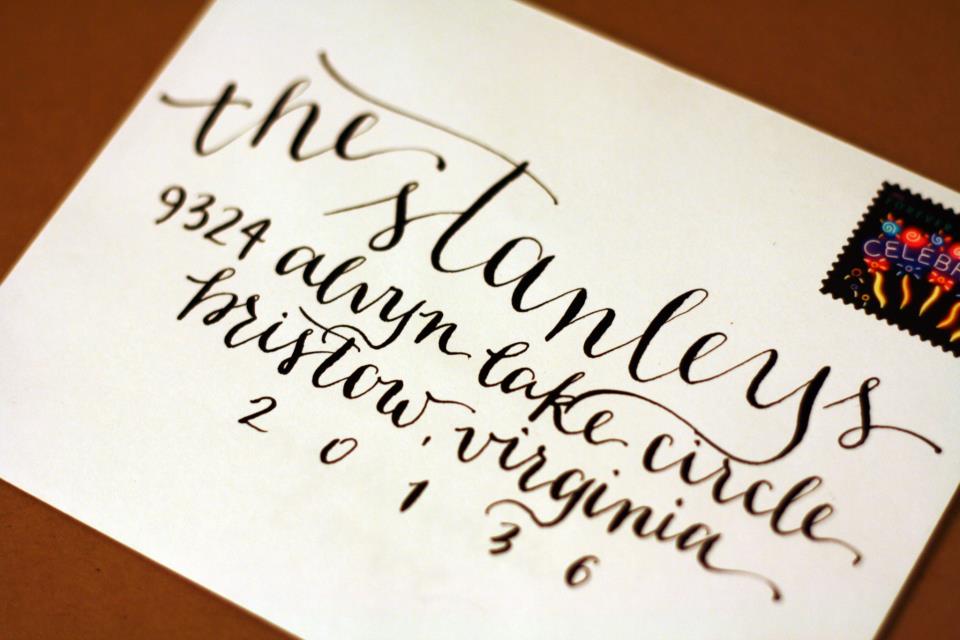 the stanleys
9324 alvyn lake circle
bristow, virginia
2 0 1 3 6
FOREVER
CELEBRA